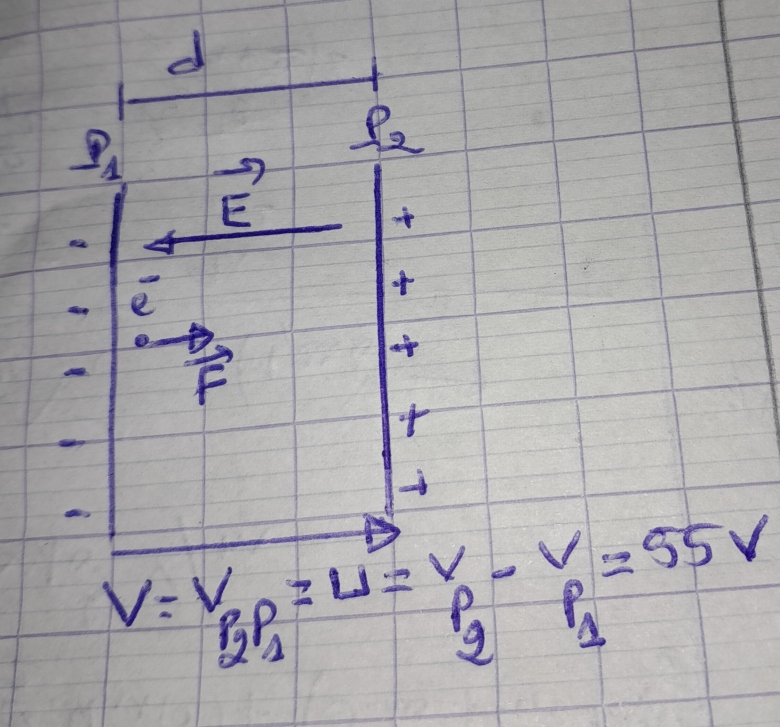 d
P₁ P₂
E⃗
- +
e⁻
- +
- +
F⃗
- +
- +
V = V_{P₂P₁} = U = V_{P₂} - V_{P₁} = 55 V